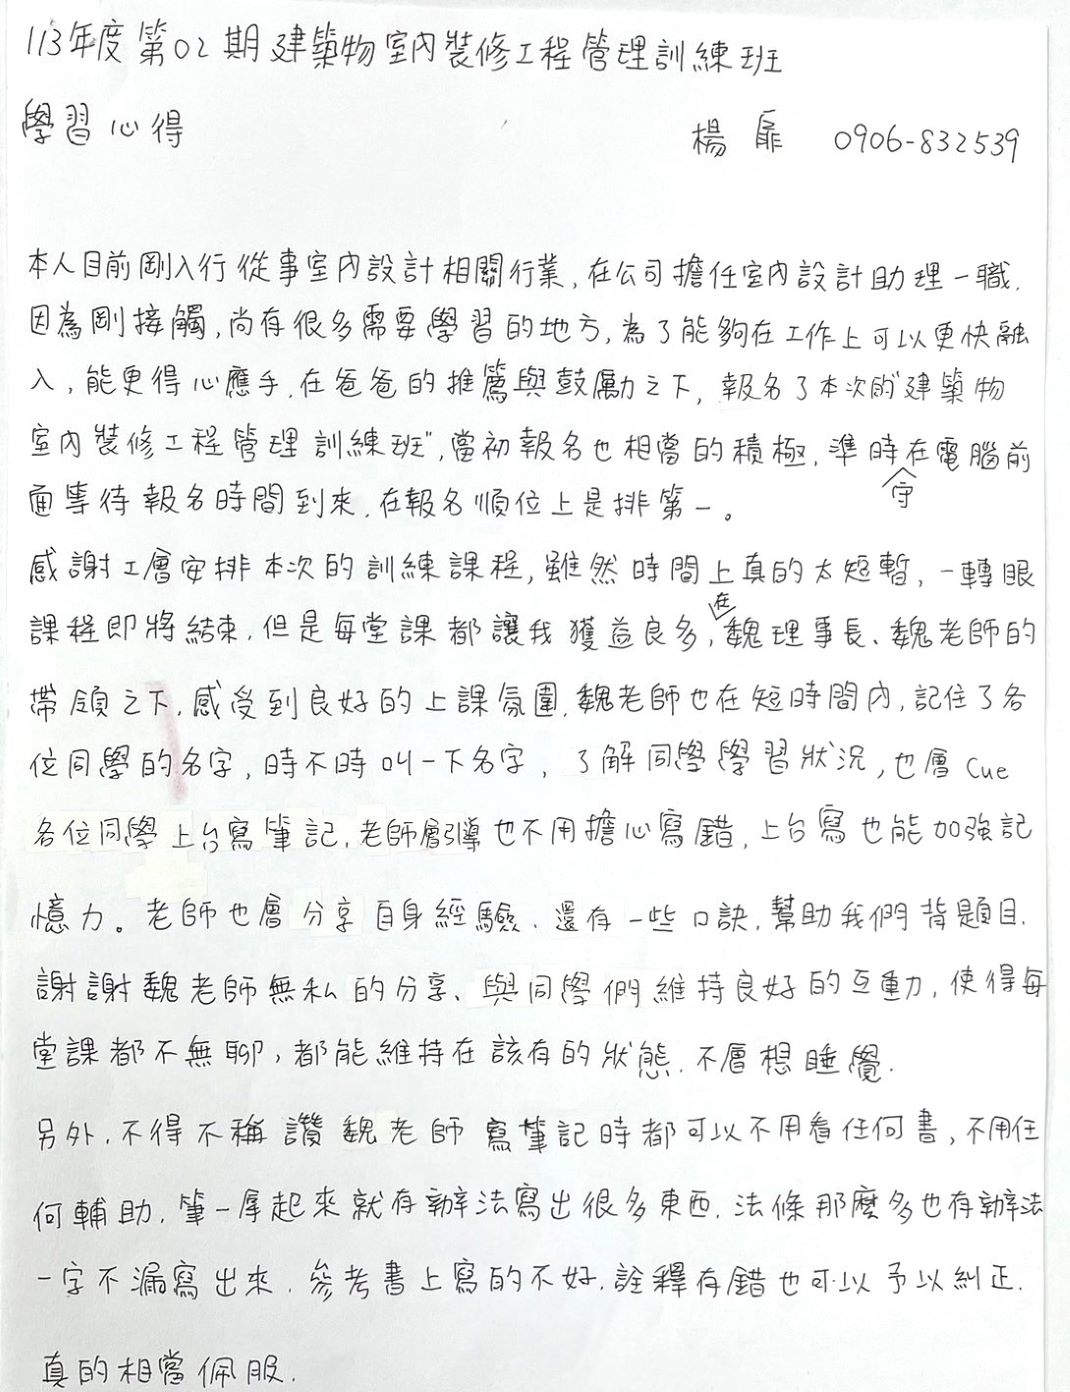 113年度第02期建築物室內裝修工程管理訓練班
學習心得
楊 扉 0906-832539
本人目前剛入行從事室內設計相關行業,在公司擔任室內設計助理一職.
因為剛接觸,尚有很多需要學習的地方,為了能夠在工作上可以更快融
入,能更得心應手.在爸爸的推薦與鼓勵之下,報名了本次的"建築物
室內裝修工程管理訓練班",當初報名也相當的積極.準時守在電腦前
面等待報名時間到來.在報名順位上是排第一。
感謝工會安排本次的訓練課程,雖然時間上真的太短暫,一轉眼
課程即將結束.但是每堂課都讓我獲益良多,在魏理事長、魏老師的
帶領之下.感受到良好的上課氛圍.魏老師也在短時間內,記住了各
位同學的名字,時不時叫一下名字,了解同學學習狀況,也會Cue
各位同學上台寫筆記.老師會引導也不用擔心寫錯.上台寫也能加強記
憶力。老師也會分享自身經驗.還有一些口訣.幫助我們背題目.
謝謝魏老師無私的分享、與同學們維持良好的互動,使得每
堂課都不無聊,都能維持在該有的狀態.不會想睡覺.
另外.不得不稱讚魏老師寫筆記時都可以不用看任何書,不用任
何輔助.筆一拿起來就有辦法寫出很多東西.法條那麼多也有辦法
一字不漏寫出來.參考書上寫的不好.詮釋有錯也可以予以糾正.
真的相當佩服.